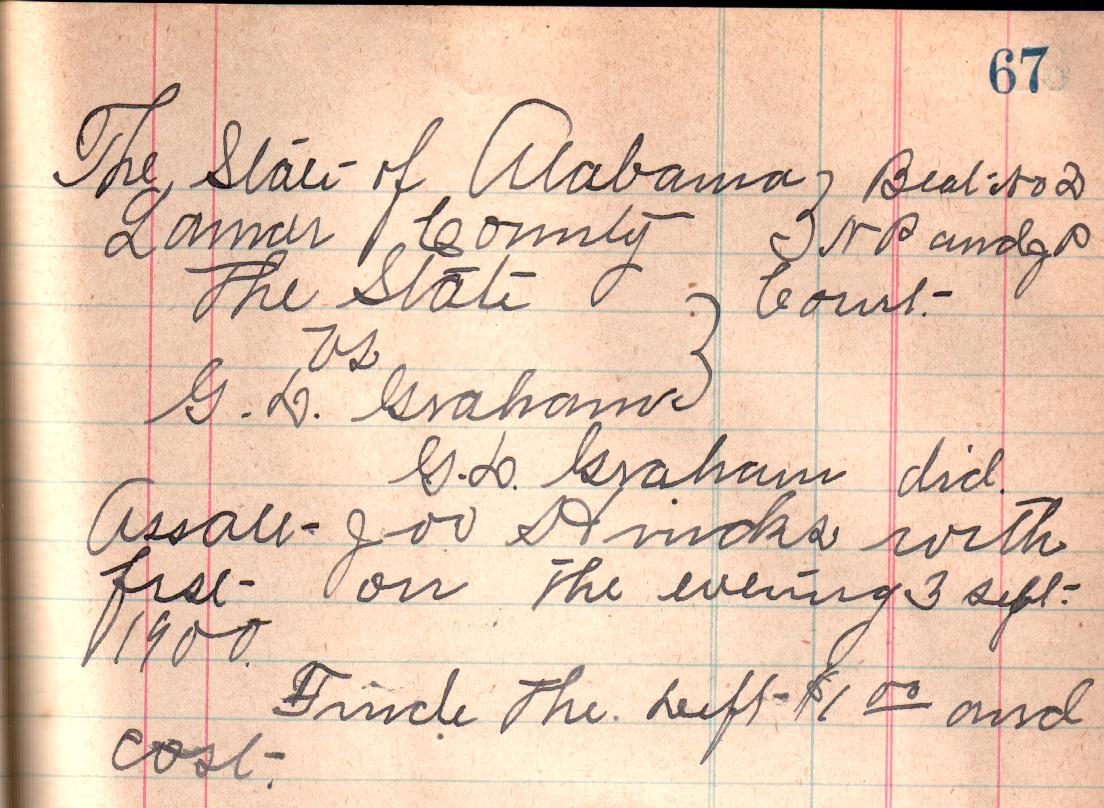 67
The State of Alabama } Beat No 2
Lamar County } N P and J P
The State } Court
vs
G. D. Graham
G. D. Graham did
Assalt with
fist on the evening 3 Sept
1900.
Finde the Deft $1 00 and
cost.